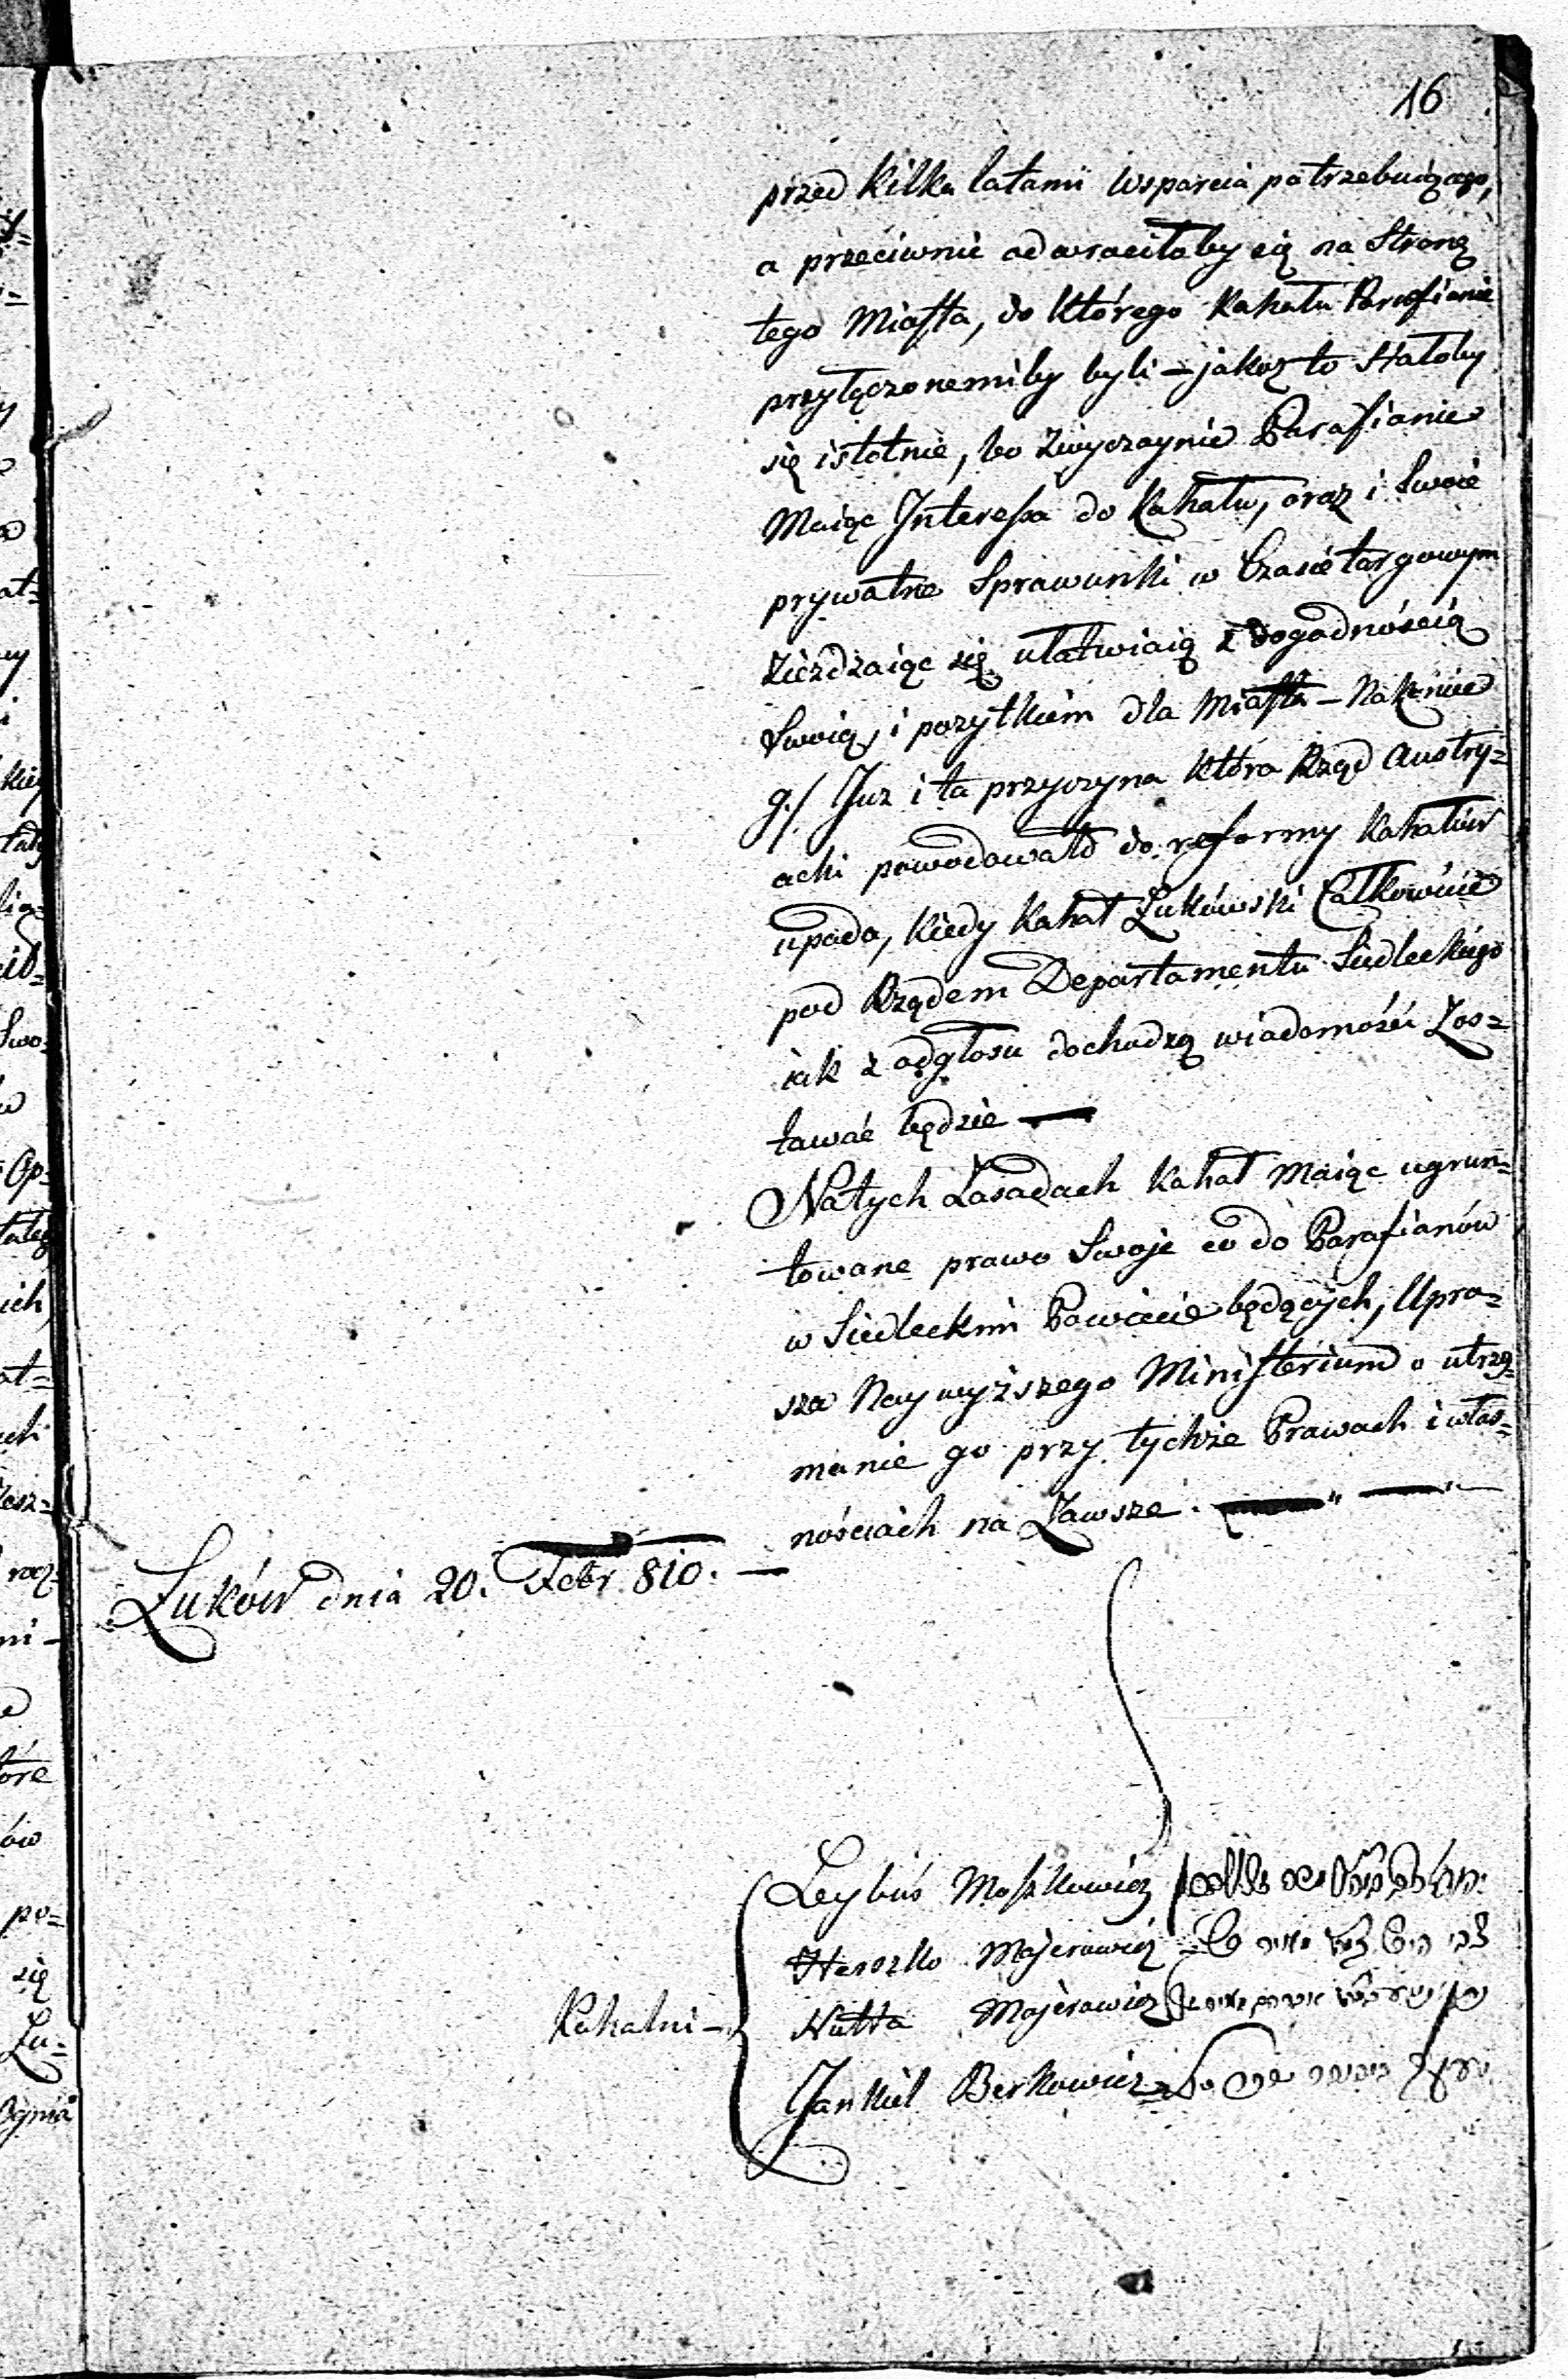 16
przed kilku latami wsparcia potrzebuiącego,
a przeciwnie odwróciłoby się na Stronę
tego Miasta, do którego Kahału Parafianie
przyłączonemiby byli – jakoż to Stałoby
się istotnie, bo zwyczaynie Parafianie
Maiąc Interessa do Kahału, oraz i Swoie
prywatne Sprawunki w Czasie targowym
zieżdzaiąc się ułatwiaią z dogodnością
Swoią, i pożytkiem dla Miasta – Nakoniec
g./ Już i ta przyczyna która Rząd Austry=
acki powodowała do reformy Kahałów
upada, kiedy Kahał Łukowski Całkowicie
pod Rządem Departamentu Siedleckiego
iak z odgłosu dochodzą wiadomości Zos=
tawać będzie —
Na tych Zasadach Kahał Maiąc ugrun=
towane prawo Swoje co do Parafianów
w Siedleckim Powiecie będących, Upra=
sza Naywyższego Ministerium o utrzy=
manie go przy tychże Prawach i włas=
nościach na Zawsze. — " — "
Łuków dnia 20. Febr. 810. —
Leybuś Moszkowicz
Herszko Majerowicz
Kahalni – Nutta Majerowicz
Jankiel Berkowicz